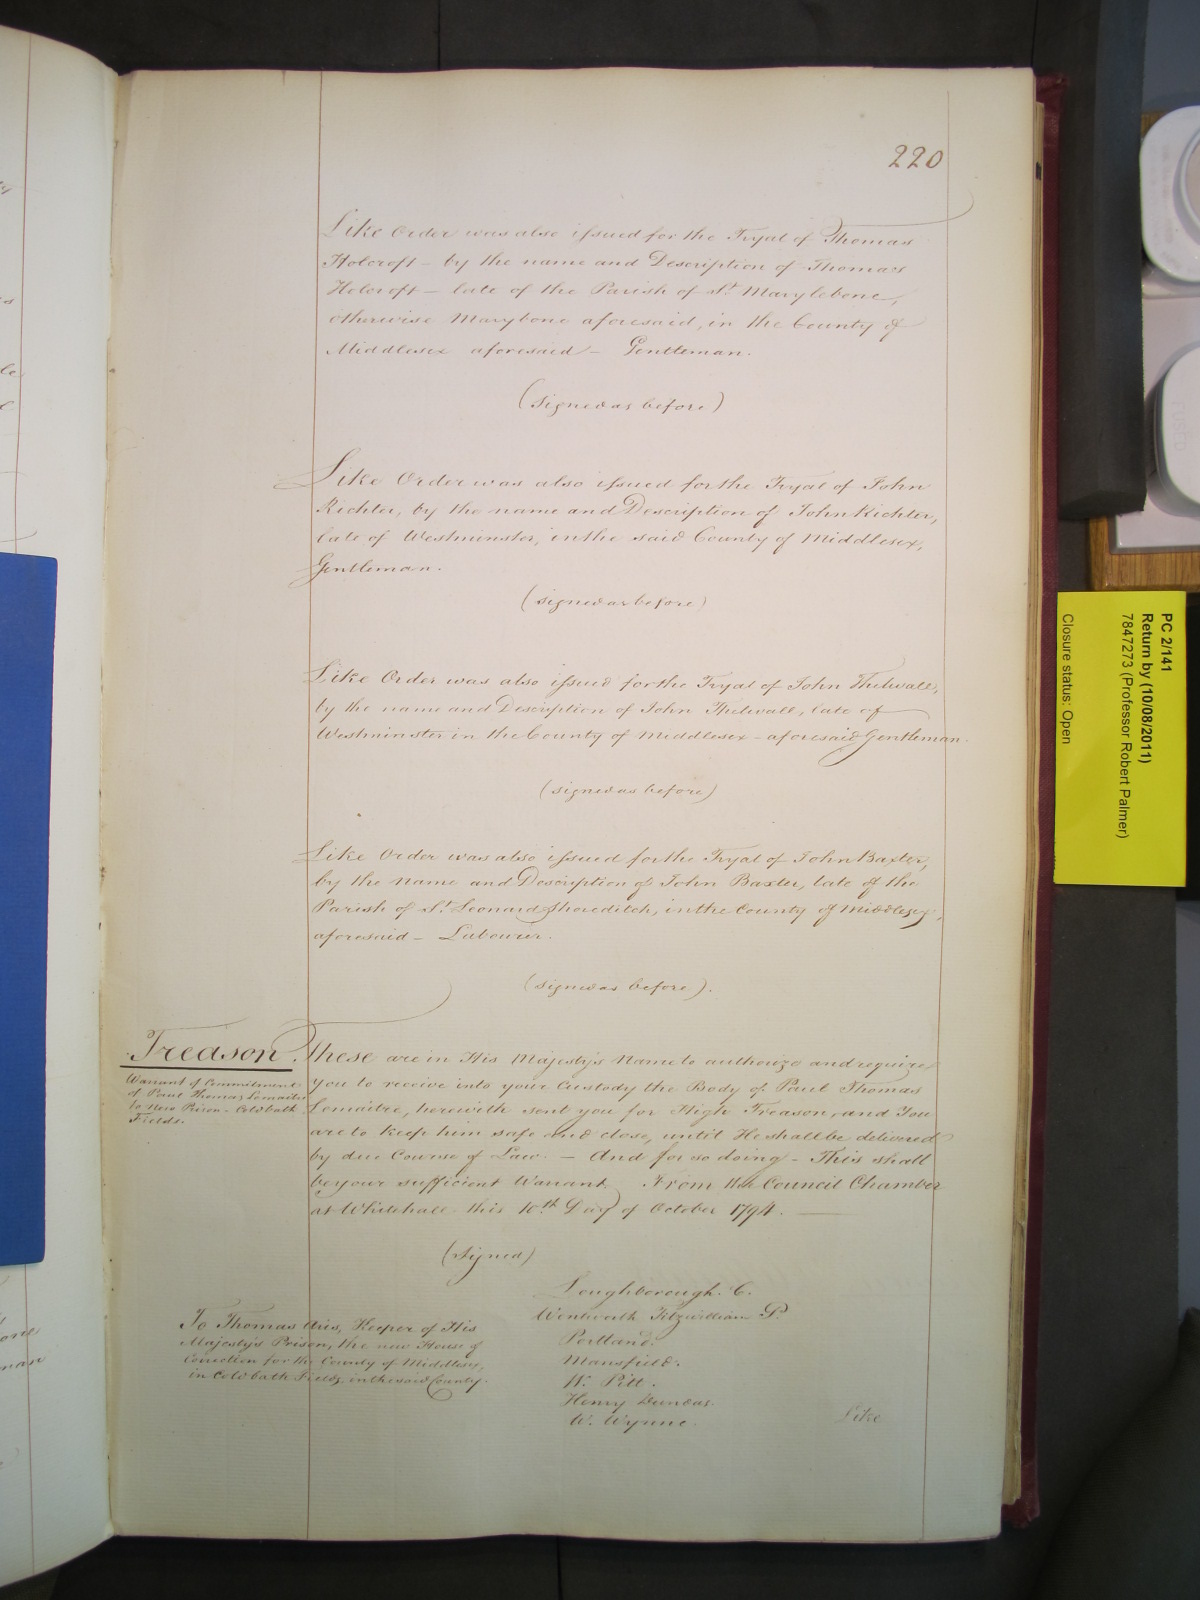 220
Like Order was also issued for the Tryal of Thomas
Holcroft - by the name and Description of Thomas
Holcroft - late of the Parish of St. Marylebone,
otherwise Marybone aforesaid, in the County of
Middlesex aforesaid - Gentleman.
(Signed as before)
Like Order was also issued for the Tryal of John
Richter, by the name and Description of John Richter,
late of Westminster, in the said County of Middlesex,
Gentleman.
(signed as before)
Like Order was also issued for the Tryal of John Thelwall,
by the name and Description of John Thelwall, late of
Westminster in the County of Middlesex - aforesaid Gentleman.
(signed as before)
Like Order was also issued for the Tryal of John Baxter,
by the name and Description of John Baxter, late of the
Parish of St. Leonard Shoreditch, in the County of Middlesex,
aforesaid - Labourer.
(signed as before).
Treason.
Warrant of Commitment
of Paul Thomas Lemaitre
to New Prison - Cold bath
Fields.
These are in His Majesty's Name to authorize and require
you to receive into your Custody the Body of Paul Thomas
Lemaitre, herewith sent you for High Treason, and You
are to keep him safe and close, until He shall be delivered
by due Course of Law. - And for so doing - This shall
be your sufficient Warrant. From the Council Chamber
at Whitehall this 10th Day of October 1794.
(Signed)
Loughborough. C.
Wentworth Fitzwilliam P.
Portland.
Mansfield.
W. Pitt.
Henry Dundas.
W. Wynne.
To Thomas Aris, Keeper of His
Majesty's Prison, the new House of
Correction for the County of Middlesex,
in Cold bath Fields, in the said County.
Like
PC 2/141
Return by (10/08/2011)
7847273 (Professor Robert Palmer)
Closure status: Open